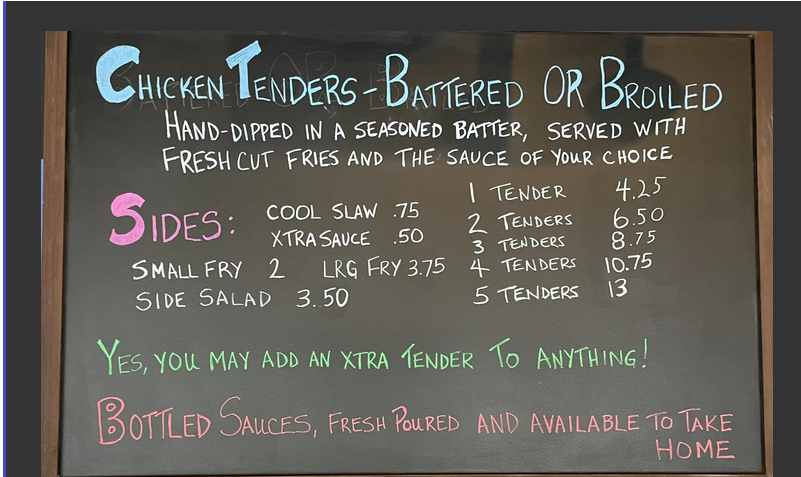 CHICKEN TENDERS - BATTERED OR BROILED
HAND-DIPPED IN A SEASONED BATTER, SERVED WITH
FRESH CUT FRIES AND THE SAUCE OF YOUR CHOICE
SIDES:
COOL SLAW .75
XTRA SAUCE .50
SMALL FRY 2 LRG FRY 3.75
SIDE SALAD 3.50
1 TENDER 4.25
2 TENDERS 6.50
3 TENDERS 8.75
4 TENDERS 10.75
5 TENDERS 13
YES, YOU MAY ADD AN XTRA TENDER TO ANYTHING!
BOTTLED SAUCES, FRESH POURED AND AVAILABLE TO TAKE
HOME